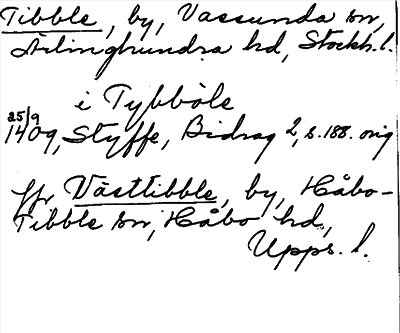 Tibble, by, Vassunda sn,
Ärlinghundra hd, Stockh. l.
i Tybböle
25/9
1409, Styffe, Bidrag 2, s. 188. orig
jfr Västtibble, by, Håbo-
Tibble sn, Håbo hd,
Upps. l.